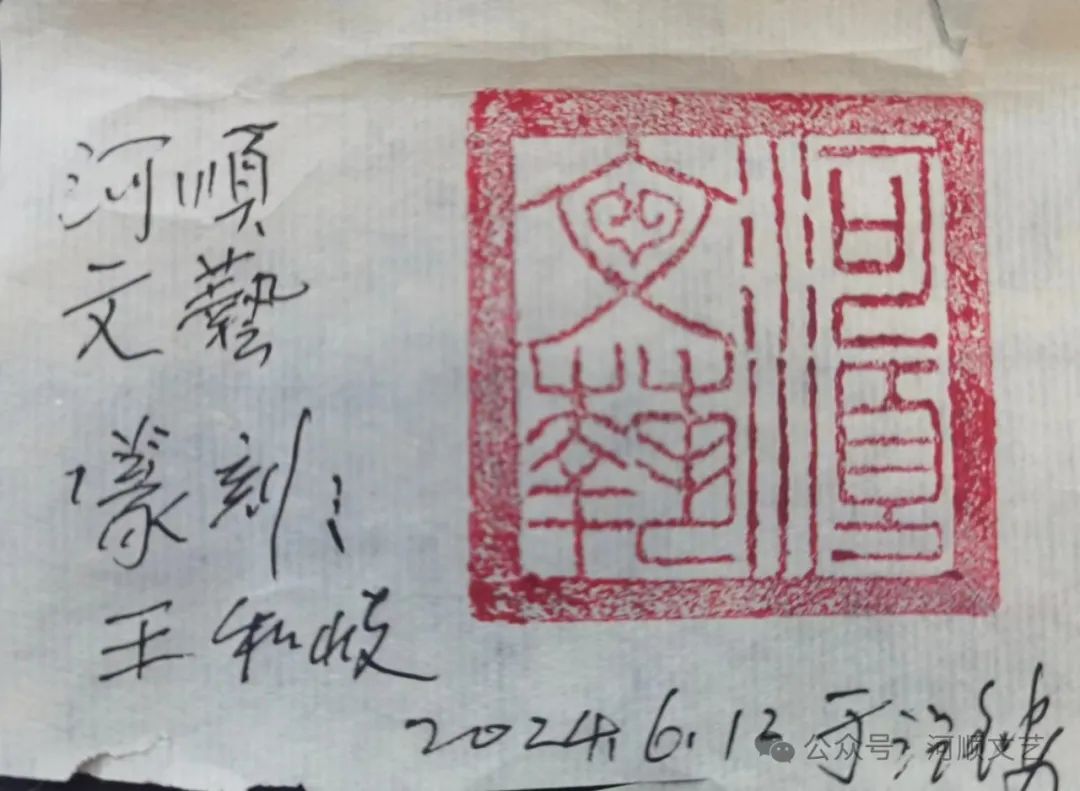 河順
文藝
篆刻:
王和岐
2024.6.12于
河順文藝
公众号:河顺文艺